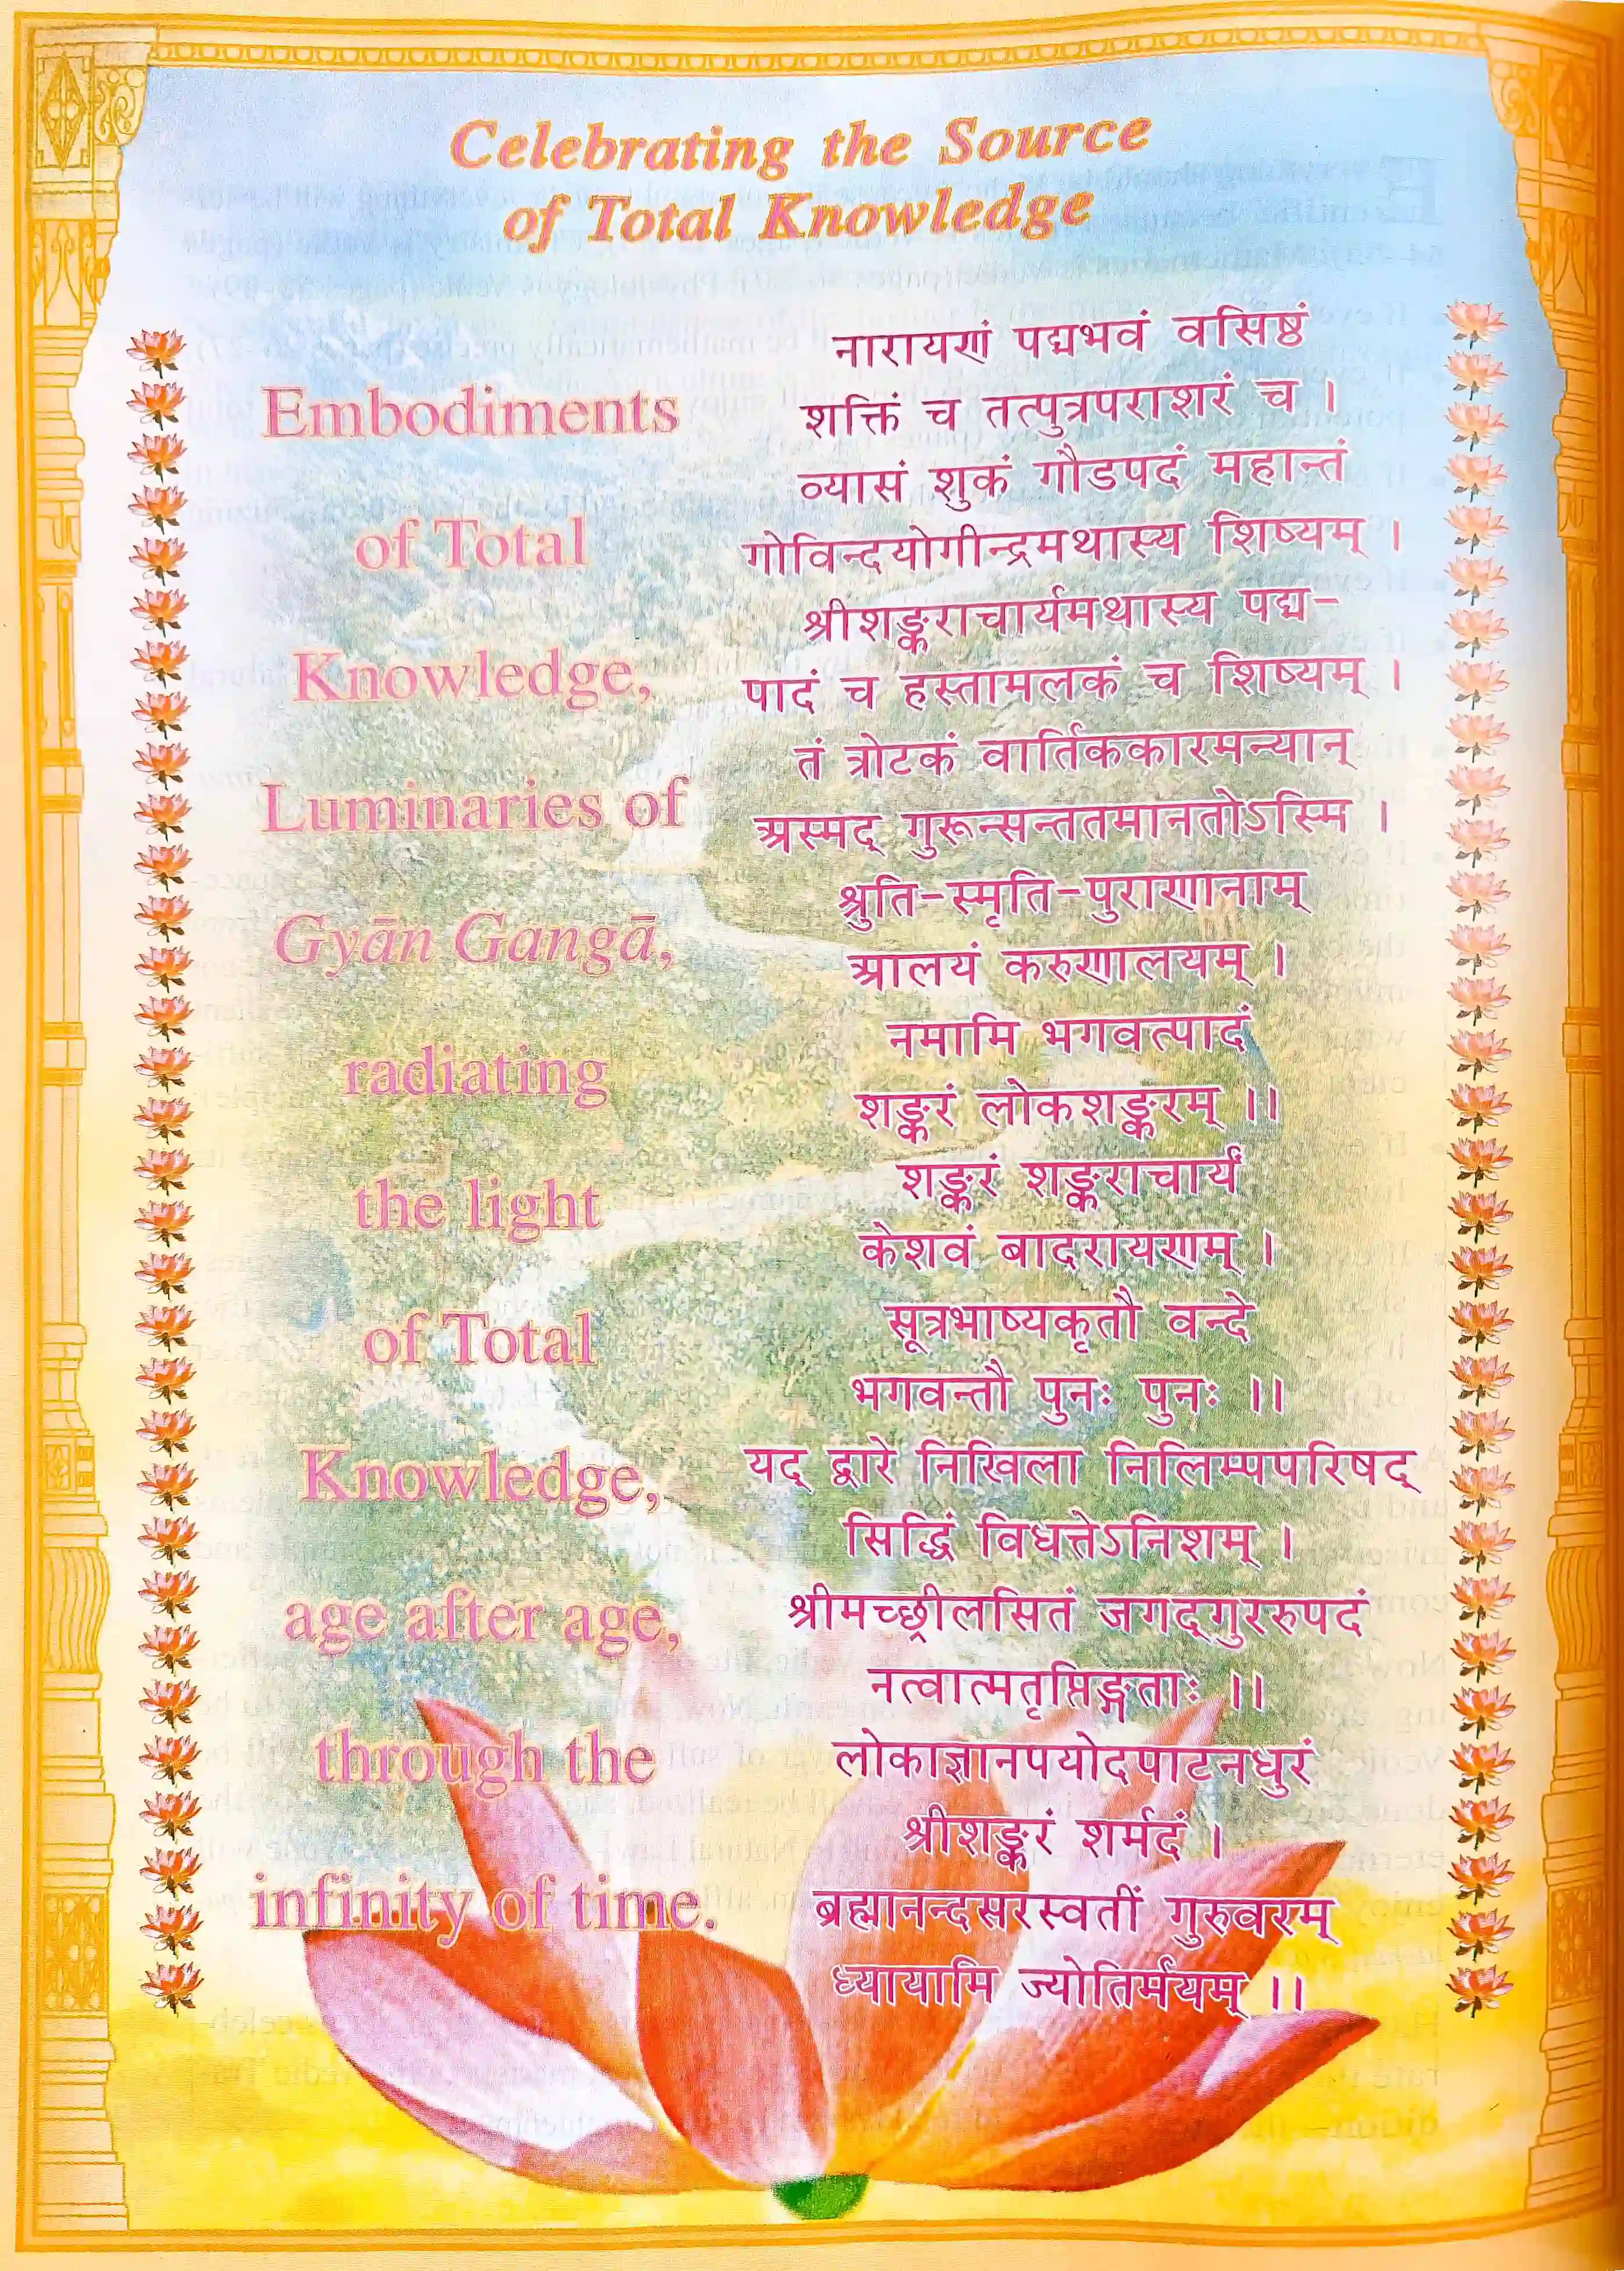 Celebrating the Source
of Total Knowledge
Embodiments
of Total
Knowledge,
Luminaries of
Gyān Gangā,
radiating
the light
of Total
Knowledge,
age after age,
through the
infinity of time.
नारायणं पद्मभवं वसिष्ठं
शक्तिं च तत्पुत्रपराशरं च ।
व्यासं शुकं गौडपदं महान्तं
गोविन्दयोगीन्द्रमथास्य शिष्यम् ।
श्रीशङ्कराचार्यमथास्य पद्म-
पादं च हस्तामलकं च शिष्यम् ।
तं त्रोटकं वार्तिककारमन्यान्
अस्मद् गुरून्सन्ततमानतोऽस्मि ।
श्रुति-स्मृति-पुराणानाम्
आलयं करुणालयम् ।
नमामि भगवत्पादं
शङ्करं लोकशङ्करम् ।।
शङ्करं शङ्कराचार्यं
केशवं बादरायणम् ।
सूत्रभाष्यकृतौ वन्दे
भगवन्तौ पुनः पुनः ।।
यद् द्वारे निखिला निलिम्पपरिषद्
सिद्धिं विधत्तेऽनिशम् ।
श्रीमच्छ्रीलसितं जगद्गुररुपदं
नत्वात्मतृप्तिङ्गताः ।।
लोकाज्ञानपयोदपाटनधुरं
श्रीशङ्करं शर्मदं ।
ब्रह्मानन्दसरस्वतीं गुरुवरम्
ध्यायामि ज्योतिर्मयम् ।।